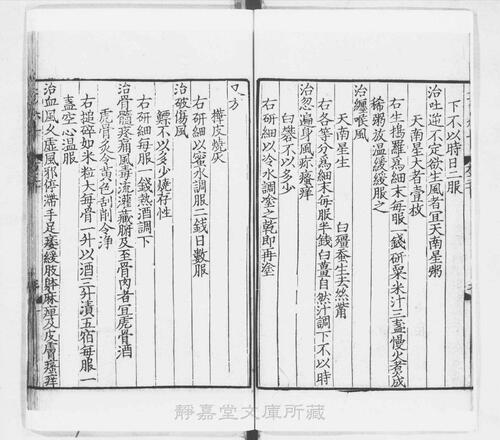 下不以時日二服
治吐逆不定欲生風者宜天南星粥
天南星大者壹枚
右生搗羅爲細末每服一錢研粟米汁三盞慢火煮成
稀粥放溫緩緩服之
治纏喉風
天南星生 白殭蚕生去絲觜
右各等分爲細末每服半錢白薑自然汁調下不以時
治忽遍身風痒
白礬不以多少
右研細以冷水調塗之乾即再塗
又方
樺皮燒灰
右研細以蜜水調服二錢日數服
治破傷風
鰾不以多少燒存性
右研細每服一錢熱酒調下
治骨髓疼痛風毒流灌藏腑及至骨肉者宜虎骨酒
虎骨炙令黄色刮削令淨
右搥碎如米粒大每骨一升以酒三升漬五宿每服一
盞空心溫服
治血風久虛風邪停滯手足痿緩肢體麻痹及皮膚瘙痒
靜嘉堂文庫所藏